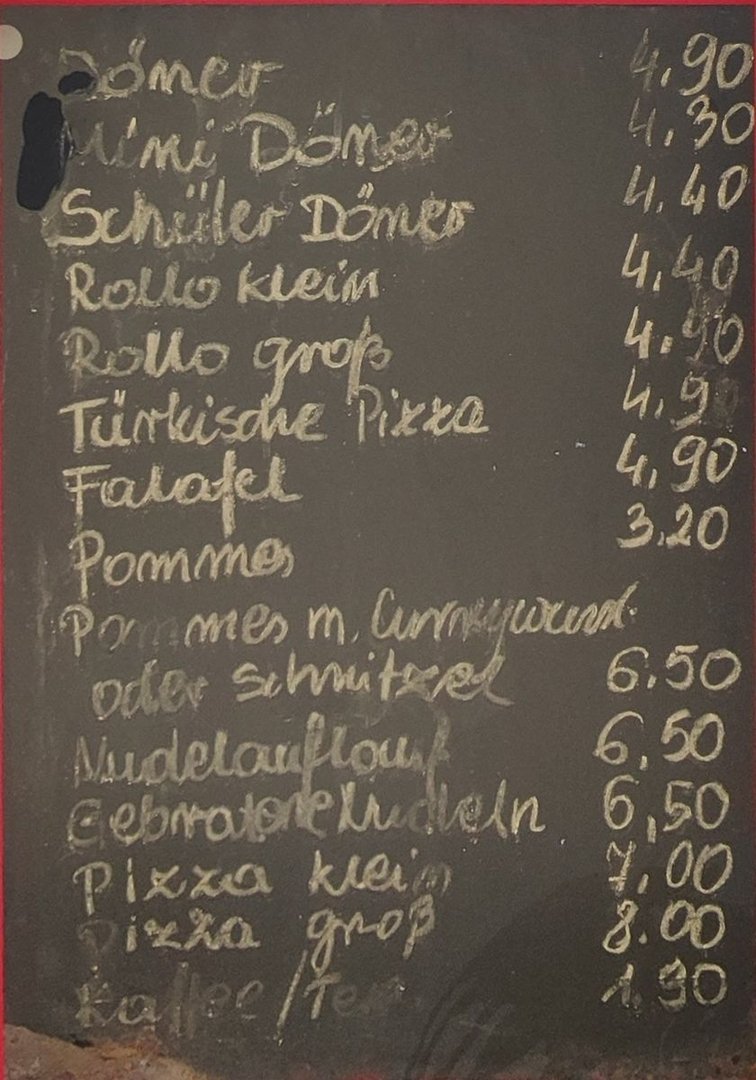 Döner 4,90
Mini Döner 4,30
Schüler Döner 4,40
Rollo klein 4,40
Rollo groß 4,90
Türkische Pizza 4,9
Falafel 4,90
Pommes 3,20
Pommes m. Currywurst
oder Schnitzel 6,50
Nudelauflauf 6,50
Gebratene Nudeln 6,50
Pizza klein 7,00
Pizza groß 8.00
Kaffee/Tee 1,90